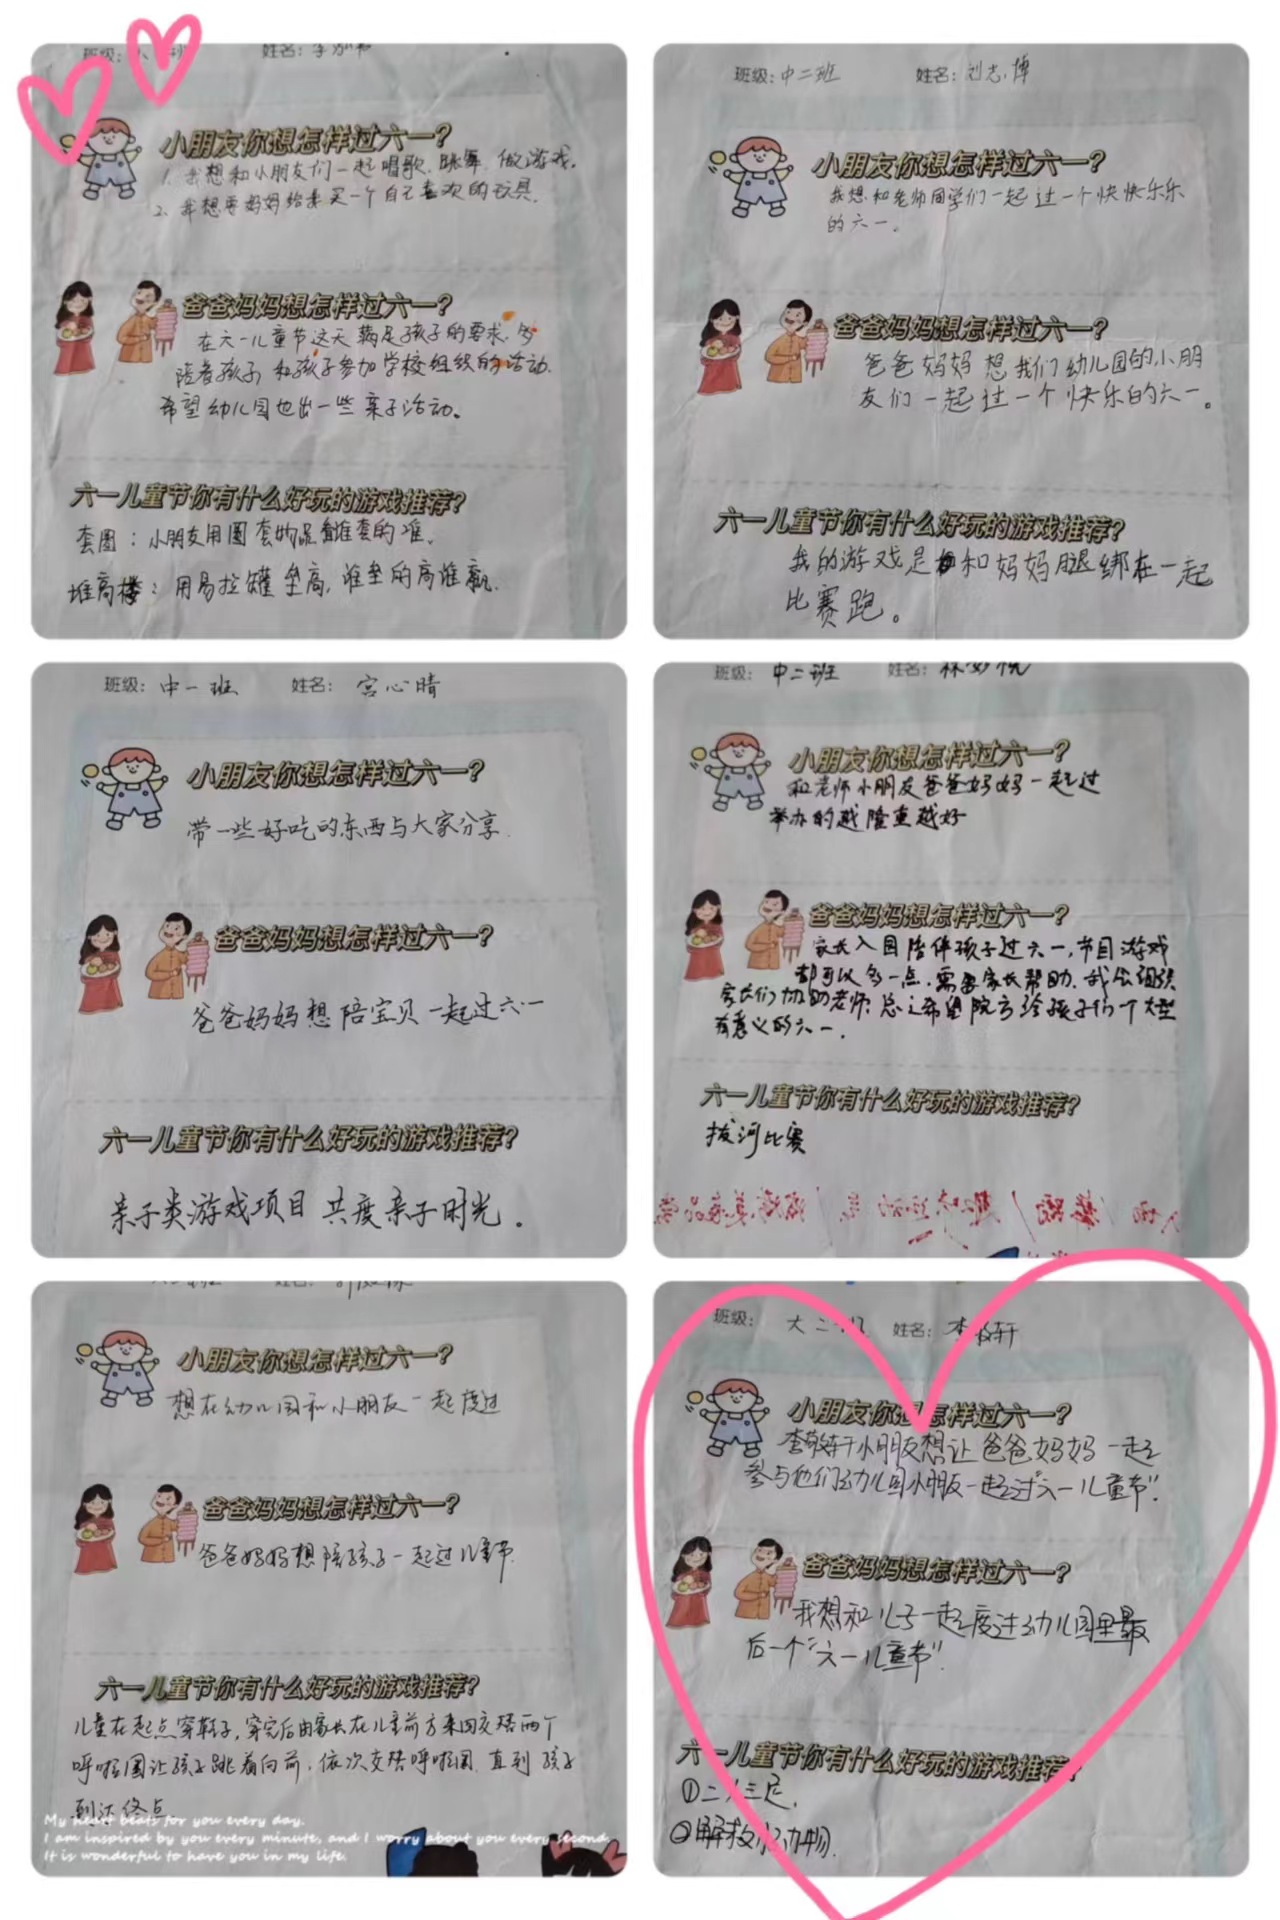 班级:
姓名: 李泓
小朋友你想怎样过六一?
1. 我想和小朋友们一起唱歌、跳舞、做游戏.
2. 我想要妈妈给我买一个自己喜欢的玩具.
爸爸妈妈想怎样过六一?
在六一儿童节这天满足孩子的要求.多
陪着孩子, 和孩子参加学校组织的活动.
希望幼儿园也出一些亲子活动。
六一儿童节你有什么好玩的游戏推荐?
套圈：小朋友用圈套物品看谁套的准.
堆高楼：用易拉罐垒高,谁垒的高谁赢.
班级: 中二班 姓名: 刘志博
小朋友你想怎样过六一?
我想和老师同学们一起过一个快快乐乐
的六一。
爸爸妈妈想怎样过六一?
爸爸妈妈想我们幼儿园的小朋
友们一起过一个快乐的六一。
六一儿童节你有什么好玩的游戏推荐?
我的游戏是和妈妈腿绑在一起
比赛跑。
班级: 中一班 姓名: 宫心晴
小朋友你想怎样过六一?
带一些好吃的东西与大家分享.
爸爸妈妈想怎样过六一?
爸爸妈妈想陪宝贝一起过六一
六一儿童节你有什么好玩的游戏推荐?
亲子类游戏项目 共度亲子时光。
班级: 中二班 姓名: 林妙悦
小朋友你想怎样过六一?
和老师小朋友爸爸妈妈一起过
举办的越隆重越好
爸爸妈妈想怎样过六一?
家长入园陪伴孩子过六一,节目游戏
都可以多一点,需要家长帮助.我会组织
家长们协助老师.总之希望院方给孩子们一个大型
有意义的六一.
六一儿童节你有什么好玩的游戏推荐?
拔河比赛
小朋友你想怎样过六一?
想在幼儿园和小朋友一起度过
爸爸妈妈想怎样过六一?
爸爸妈妈想陪孩子一起过儿童节.
六一儿童节你有什么好玩的游戏推荐?
儿童在起点穿鞋子,穿完后由家长在儿童前方来回交替两个
呼啦圈让孩子跳着向前,依次交替呼啦圈.直到孩子
到达终点.
My heart beats for you every day.
I am inspired by you every minute, and I worry about you every second.
It is wonderful to have you in my life.
班级: 大二班 姓名: 李敬轩
小朋友你想怎样过六一?
李敬轩小朋友想让爸爸妈妈一起
参与他们幼儿园小朋友一起过"六一儿童节".
爸爸妈妈想怎样过六一?
我想和儿子一起度过幼儿园里最
后一个"六一儿童节".
六一儿童节你有什么好玩的游戏推荐?
①二人三足.
②解救小动物.